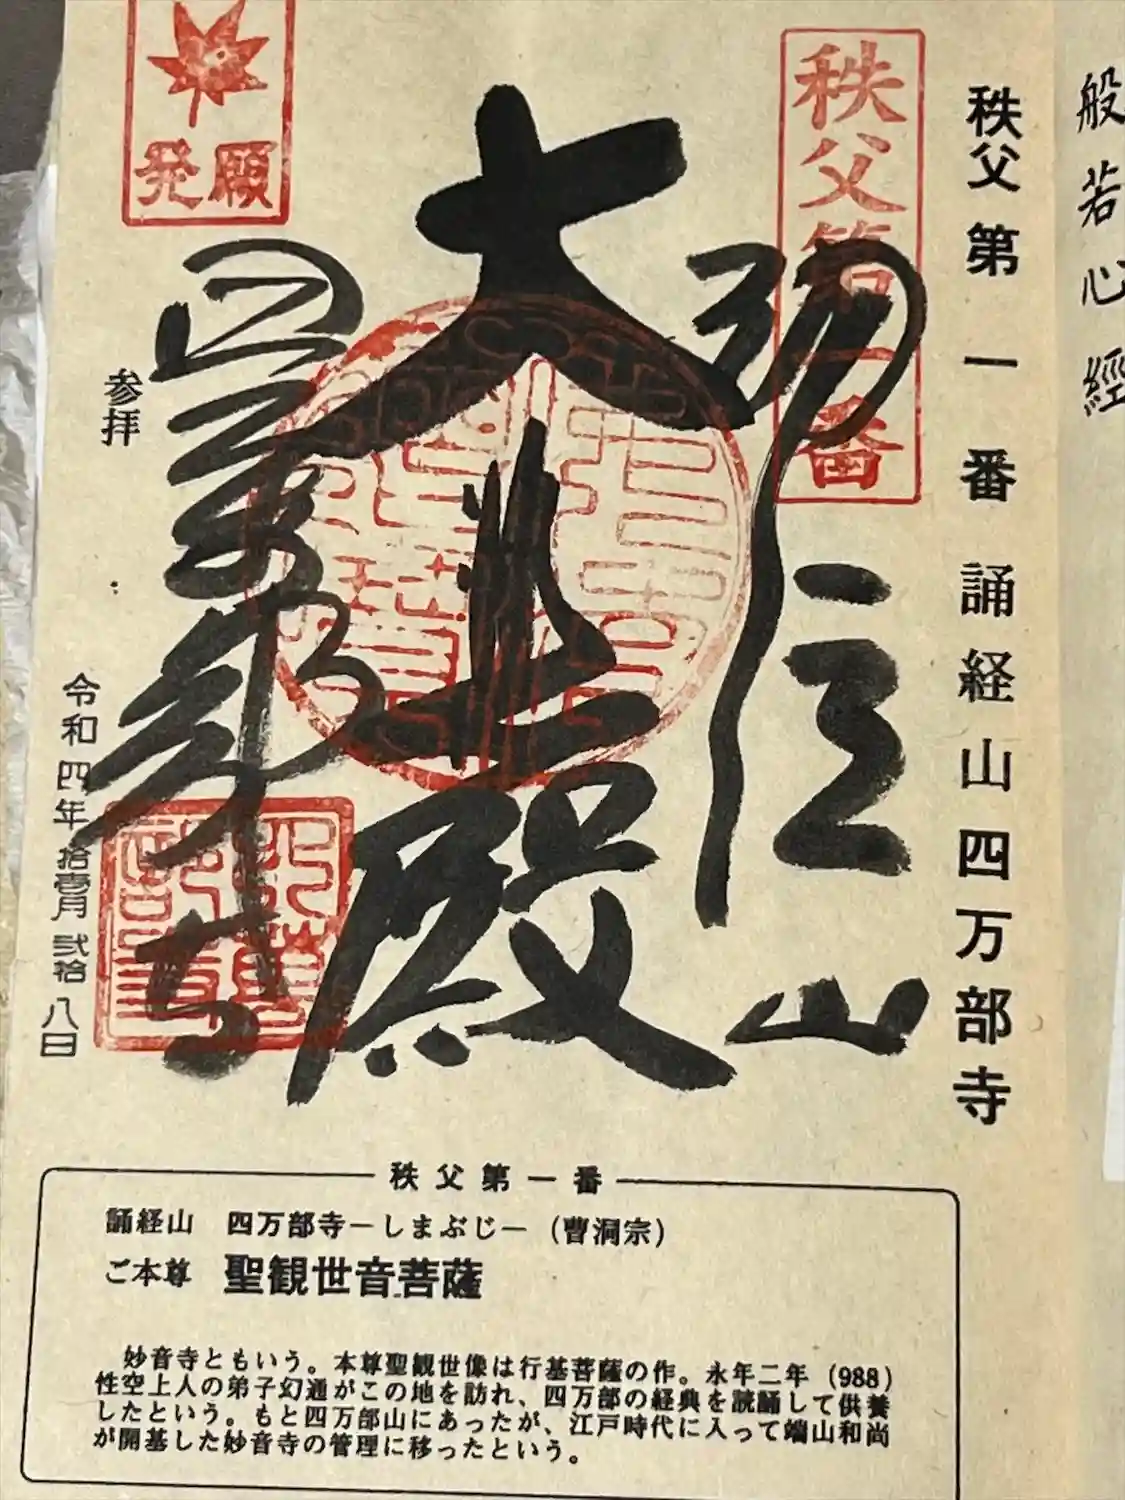 般若心經
秩父第一番誦経山四万部寺
秩父第一番
誦経山
大悲殿
四萬部寺
発願
参拝
令和四年拾壹月弐拾八日
秩父第一番
誦経山 四万部寺―しまぶじ―（曹洞宗）
ご本尊 聖観世音菩薩
妙音寺ともいう。本尊聖観世像は行基菩薩の作。永年二年（988）
性空上人の弟子幻通がこの地を訪れ、四万部の経典を読誦して供養
したという。もと四万部山にあったが、江戸時代に入って端山和尚
が開基した妙音寺の管理に移ったという。